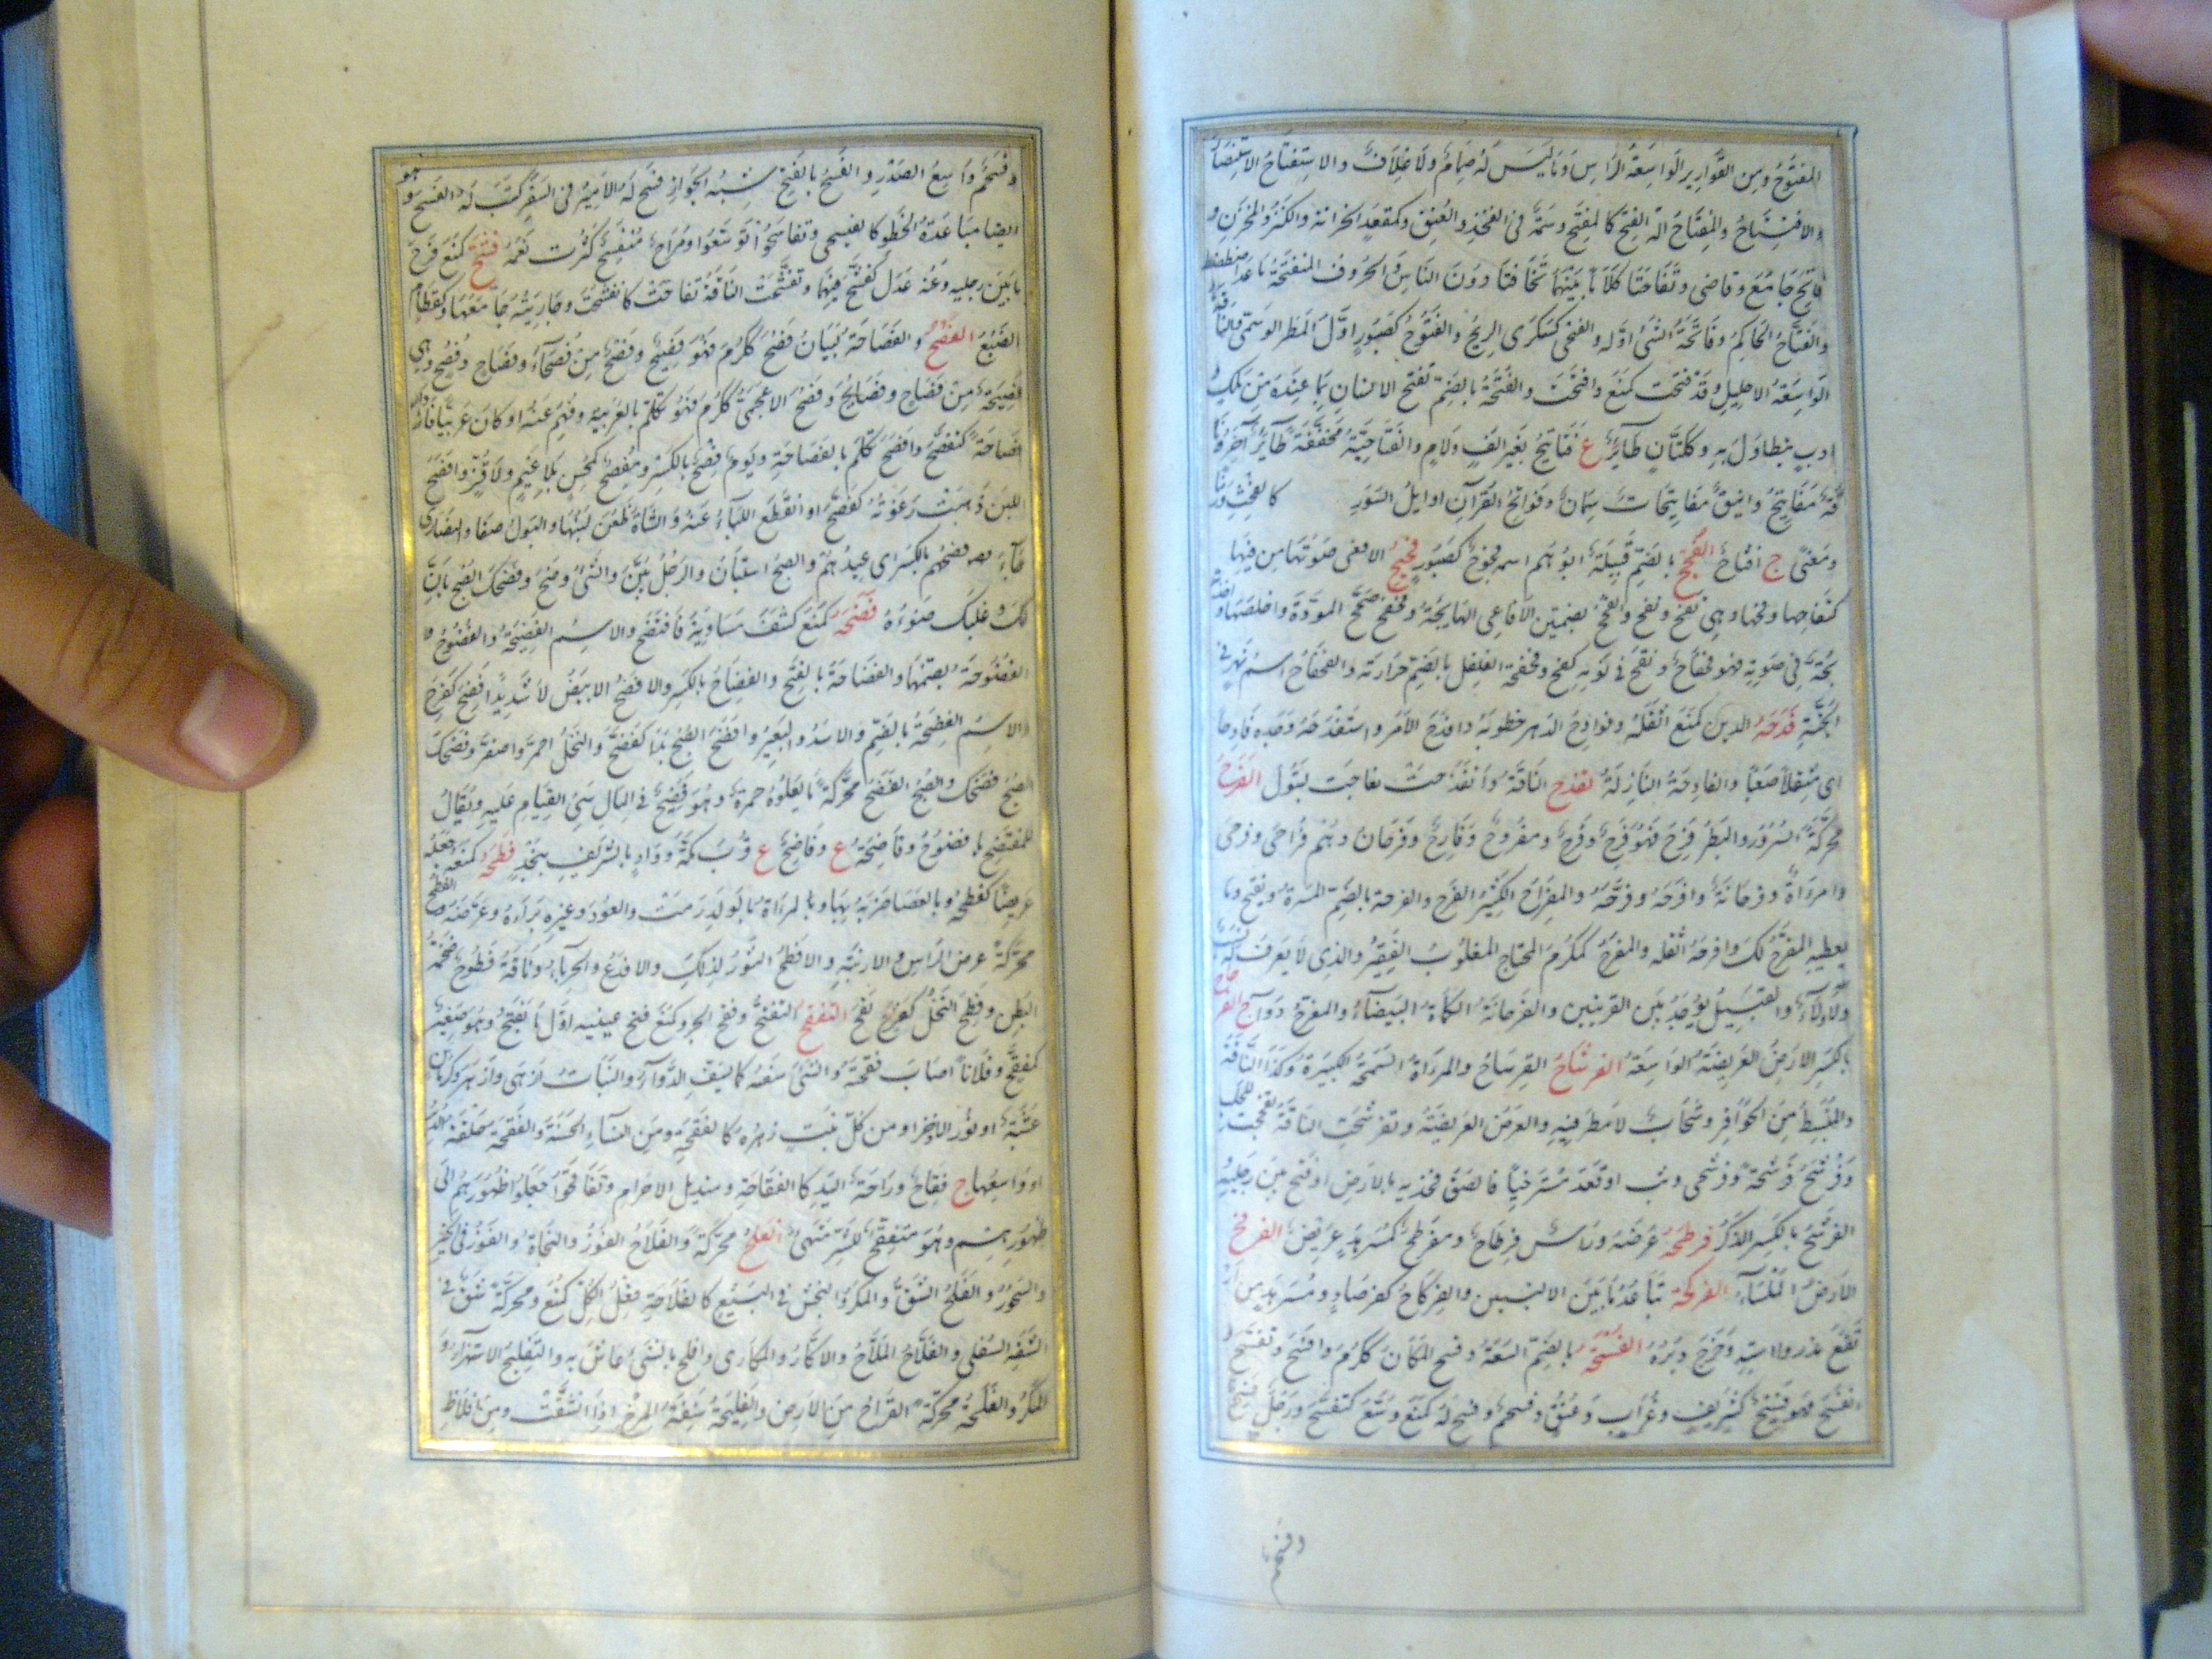 المفتوح ومن القوارير الواسعة الراس وما ليس له صمام ولا غلاف والاستفتاح الاستنصار
والافتتاح والمفتاح آلة الفتح كالمفتح وسمة في الفخذ والعنق وكمقعد الخزانة والكنز والمخزن و
فاتح جامع وقاضى وتفاتحا كلاما بينهما تخافتا دون الناس والحروف المنفتحة ما عدا ضطصظ
والفتاح الحاكم وفاتحة الشئ اوله والفتحى كسكرى الريح والفتوح كصبور اول المطر الوسمى والناقة
الواسعة الاحليل وقد فتحت كمنع وافتحت والفتحة بالضم تفتح الانسان بما عنده من ملك و
ادب يتطاول به وككتان طائر ع فتاتيح بغير الف ولام والفتاحية مخففة طائر آخر وناقة
مفاتيح واينق مفاتيحات سمان وفواتح القرآن اوايل السور كالفحث وزنا
ومعنى ج افتاح الفجح بالضم قبيلة ابوهم اسمه فجوح كصبور فحيح الافعى صوتها من فيها
كتفاحها وفحها وهى تفح وتفح والفحح بضمتين الافاعى الهايجة وفحفح صحح المودة واخلصها واخذته
بحة في صوته فهو فحفاح ونفح في نومه كفح وفحفحة الفلفل بالضم حرارته والفحفاح اسم نهر في
الجنة فدحه الدين كمنع اثقله وفوادح الدهر خطوبه وافدح الامر واستفدحه وجده فادحا
اى مثقلا صعبا والفادحة النازلة تفذح الناقة وانفذحت تفاجت لتبول الفرح
محركة السرور والبطر فرح فهو فرح وفرح ومفروح وفارح وفرحان وهم فراحى وفرحى
وامراة فرحانة وافرحه وفرحه والمفراح الكثير الفرح والفرحة بالضم المسرة ويفتح وما
يعطيه المفرح لك وافرحه اثقله والمفرح كمكرم المحتاج المغلوب الفقير والذى لا يعرف له نسب
ولا ولاء والقتيل يوجد بين القريتين والفرحانة الكماة البيضاء والمفرح دوآء م الفرساح
بالكسر الارض العريضة الواسعة الفرشاح الفرساح والمراة السمجة الكبيرة وكذا الناقة
والمنبسط من الحوافر وسحاب لا مطر فيه والعرض العريضة وتفرشحت الناقة تفحجت للحلب
وفرشح فرشحة وفرشحى وثب او قعد مسترخيا فالصق فخذيه بالارض او فتح بين رجليه
الفرشح بالكسر الذكر فرطحه عرضه وراس فرطاح ومفرطح كمسرهد عريض الفرقح
الارض الملساء الفركحة تباعد ما بين الاليتين والفركاح كفرصاد ومسرهد من ار
تفع مذروا استه وخرج دبره الفسحة بالضم السعة وفسح المكان ككرم وافسح وتفسح و
انفسح فهو فسيح كشريف وغراب وعنق وفسحم وفسح له كمنع وسع كتفسح ورجل فسح
وفسحم
وفسحم واسع الصدر والفسح بالفتح شبه الجواز فسح له الامير في السفر كتب له الفسح وهو
ايضا مباعدة الخطو كالفيسحى وتفاسحوا توسعوا ومراح منفسح كثرت نعمه فشح كمنع فرج
ما بين رجليه وعنه عدل كفشح فيهما وتفشحت الناقة تفاجت كانفشحت وجاريته جامعها وكقطام
الضبع الفصح والفصاحة البيان فصح ككرم فهو فصيح وفصح من فصحاء وفصاح وفصح وهى
فصيحة من فصاح وفصايح وفصح الاعجمى ككرم فهو تكلم بالعربية وفهم عنه او كان عربيا فازداد
فصاحة كتفصح وافصح تكلم بالفصاحة ويوم فصح بالكسر ومفصح كمحسن بلا غيم ولا قر وافصح
اللبن ذهبت رغوته كفصح او انقطع اللباء عنه والشاة خلص لبنها والبول صفا والنصارى
جاء فصحهم بالكسر اى عيدهم والصبح استبان والرجل بين والشئ وضح وفصحك الصبح بان
لك وغلبك ضوءه فضحه كمنع كشف مساويه فافتضح والاسم الفضيحة والفضوح و
الفضوحة بضمها والفضاحة بالفتح والفضاح بالكسر والافضح الابيض لا شديدا فضح كفرح
والاسم الفضحة بالضم والاسد والبعير وافضح الصبح بدا كفضح والنخل احمر واصفر وفضحك
الصبح فصحك والصبح الفضح محركة ما يعلوه حمرة وهو فضيح في المال سئ القيام عليه ويقال
للمفتضح يا فضوح وفاضحة ع وفاضح ع قرب مكة وواد بالشريف بنجد فطحه كمنعه جعله
عريضا كفطحه وبالعصا ضربه بها وبالمراة بالولد رمت والعود وغيره براه وعرضه والفطح
محركة عرض الراس والارنبة والافطح الثور لذلك والافدع والحرباء وناقة فطوح ضخمة
البطن وفطح النخل كفرح لقح التفقح التفتح وفقح الجرو كمنع فتح عينيه اول ما يفتح وهو صغير
كمفقح وفلانا اصاب فقحته والشئ سفه كما يسف الدواء والنبات ازهى وازهر وكرمان
عشبة او نور الاذخر او من كل نبت زهره كالفقحة ومن النساء الحسنة والفقحة حلقة الدبر
او واسعها ج فقاح وراحة اليد كالفقاحة ومنديل الاحرام وتفاقحوا جعلوا ظهورهم الى
ظهورهم وهو متفقح للشر متهئ الفلح محركة والفلاح الفوز والنجاة والفوز في الخير
والسحور والفلح الشق والمكر والنجش في البيع كالفلاحة فعل الكل كمنع ومحركة شق في
الشفة السفلى والفلاح الملاح والاكار والمكارى وافلح بالشئ عاش به والتفليح الاستهزاء و
المكر والفلحة محركة القراح من الارض والفليحة سنفة المرخ اذا انشقت ومن الفاظ